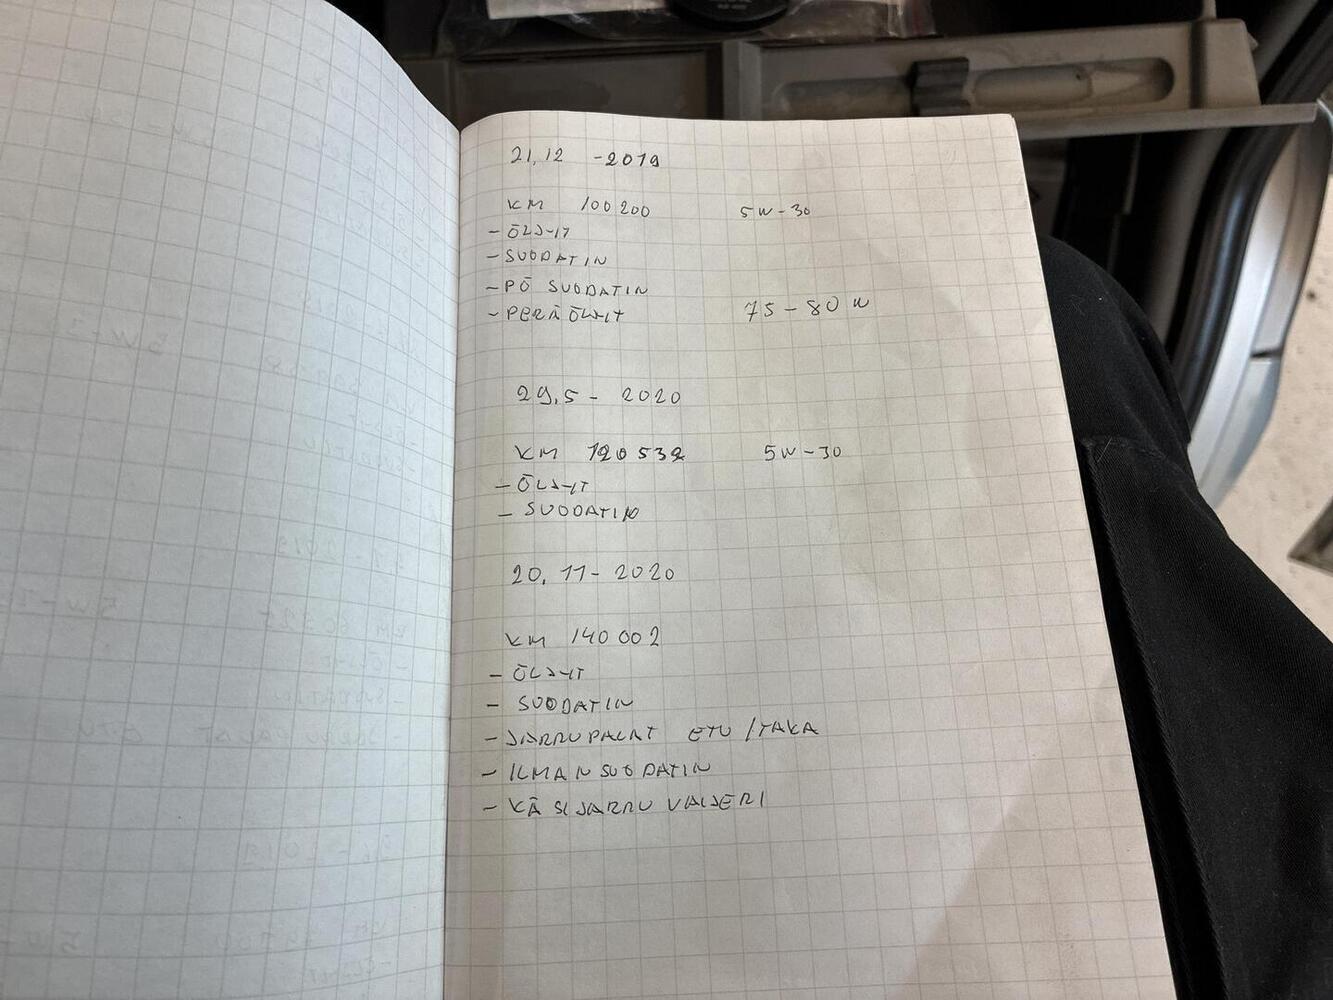 21.12 -2019
KM 100200 5W-30
- ÖLJYT
- SUODATIN
- PÖ SUODATIN
- PERÄÖLJYT 75-80W
29.5- 2020
KM 120532 5W-30
- ÖLJYT
- SUODATIN
20.11-2020
KM 140002
- ÖLJYT
- SUODATIN
- JARRUPALAT ETU/TAKA
- ILMANSUODATIN
- KÄSIJARRU VAIJERI